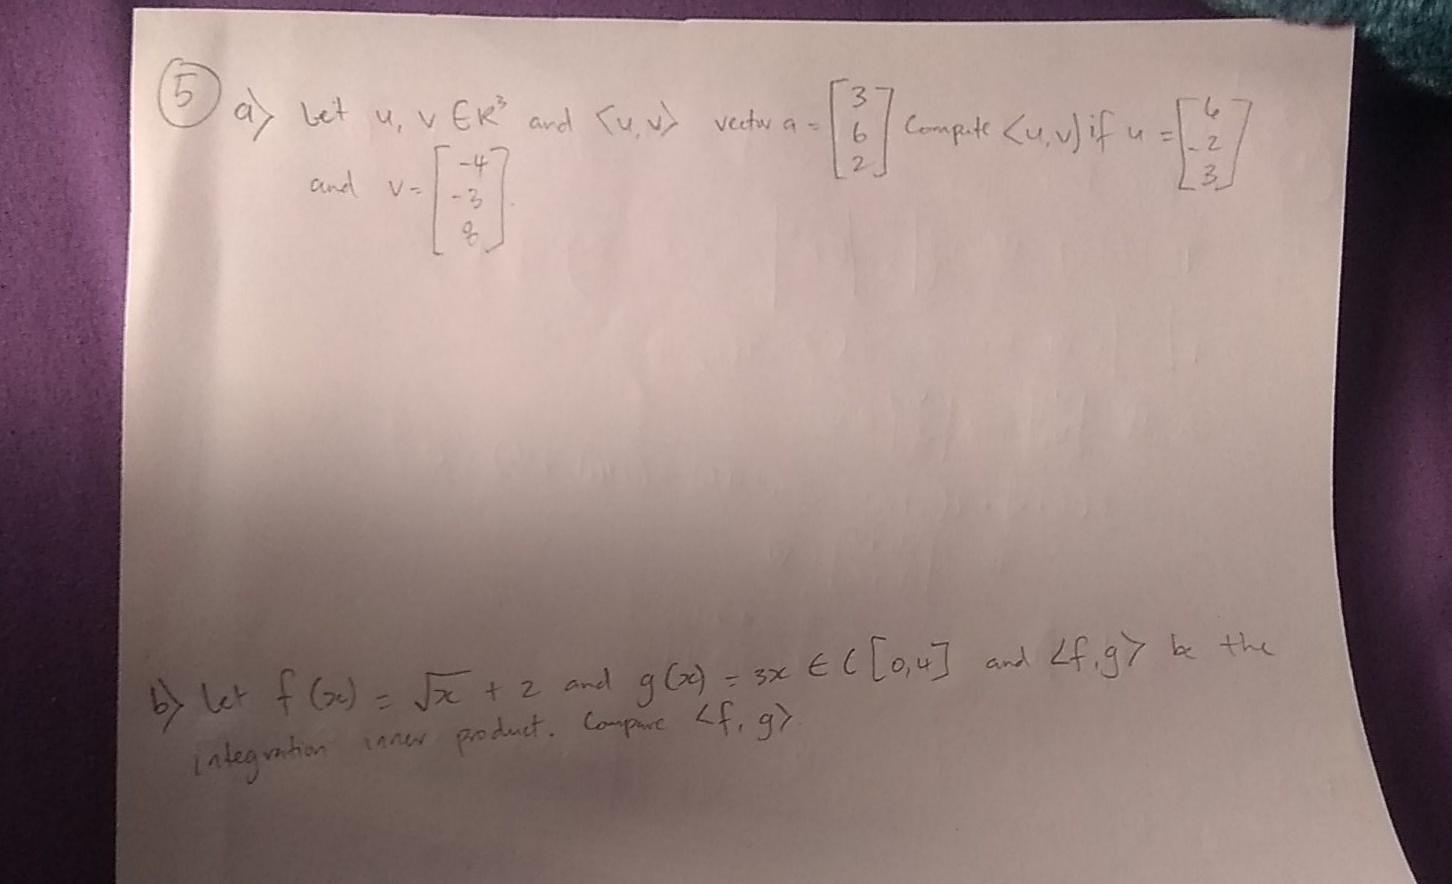 ⑤ a) Let u, v ∈ R³ and <u,v> vector a = [3 6 2] Compute <u,v> if u = [6 -2 3]
and v = [-4 -3 8].
b) Let f(x) = √x + 2 and g(x) = 3x ∈ C[0,4] and <f,g> be the
integration inner product. Compare <f,g>.